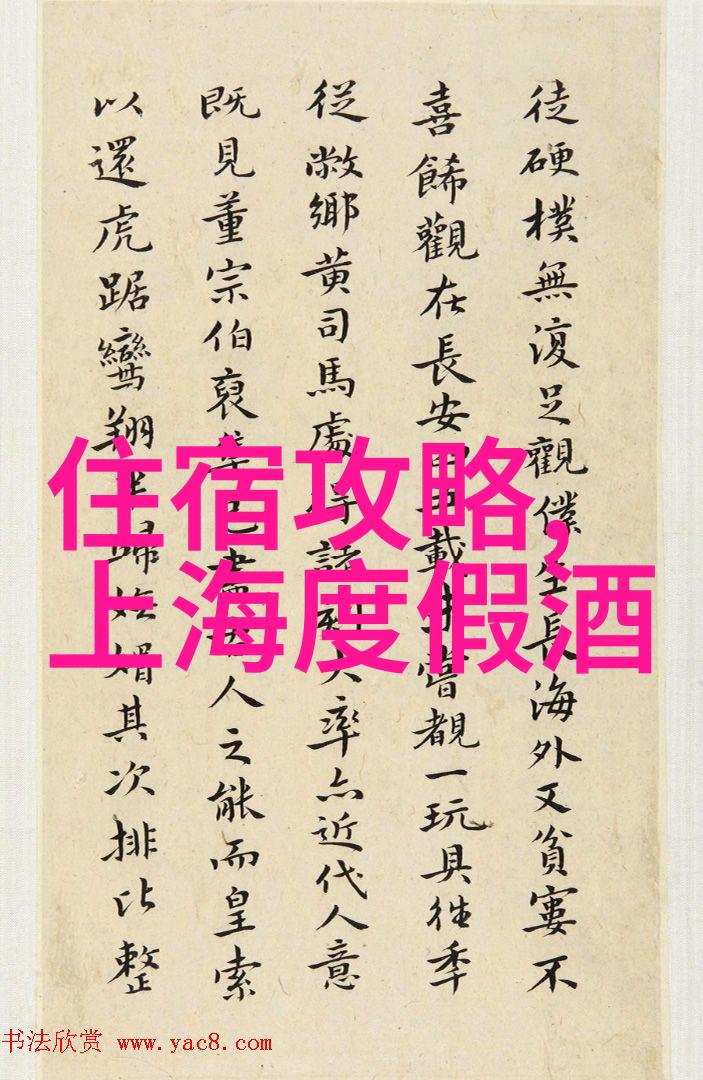 徒硬樸無復足觀僕生長海外又貧窶不
喜餙觀在長安載嘗覩一玩具往季
從敝鄉黄司馬處得諸大率亦近代人意
既見董宗伯裒人之能而皇索
以還虎踞鸞翔歸嫵媚其次排比整
住宿攻略,
上海度假酒
书法欣赏 www.yac8.com